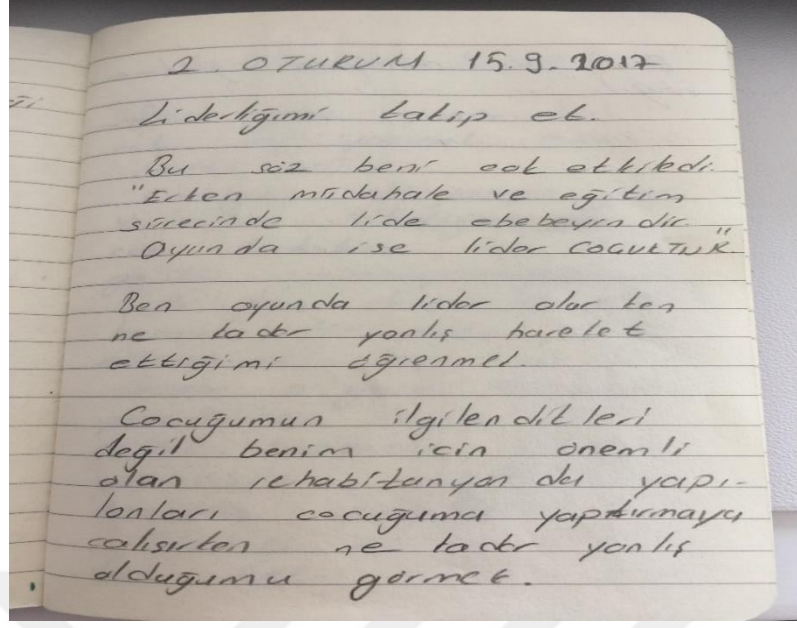 2. OTURUM 15.9.2017
Liderliğimi takip et.
Bu söz beni çok etkiledi.
"Erken müdahale ve eğitim
sürecinde lide ebebeyndir.
Oyunda ise lider ÇOCUKTUR."
Ben oyunda lider olurken
ne kadar yanlış hareket
ettiğimi öğrenmek.
Cocuğumun ilgilendikleri
değil benim için önemli
olan rehabilitanyonda yapı-
lanları cocuğuma yaptırmaya
calışırken ne kadar yanlış
olduğumu görmek.